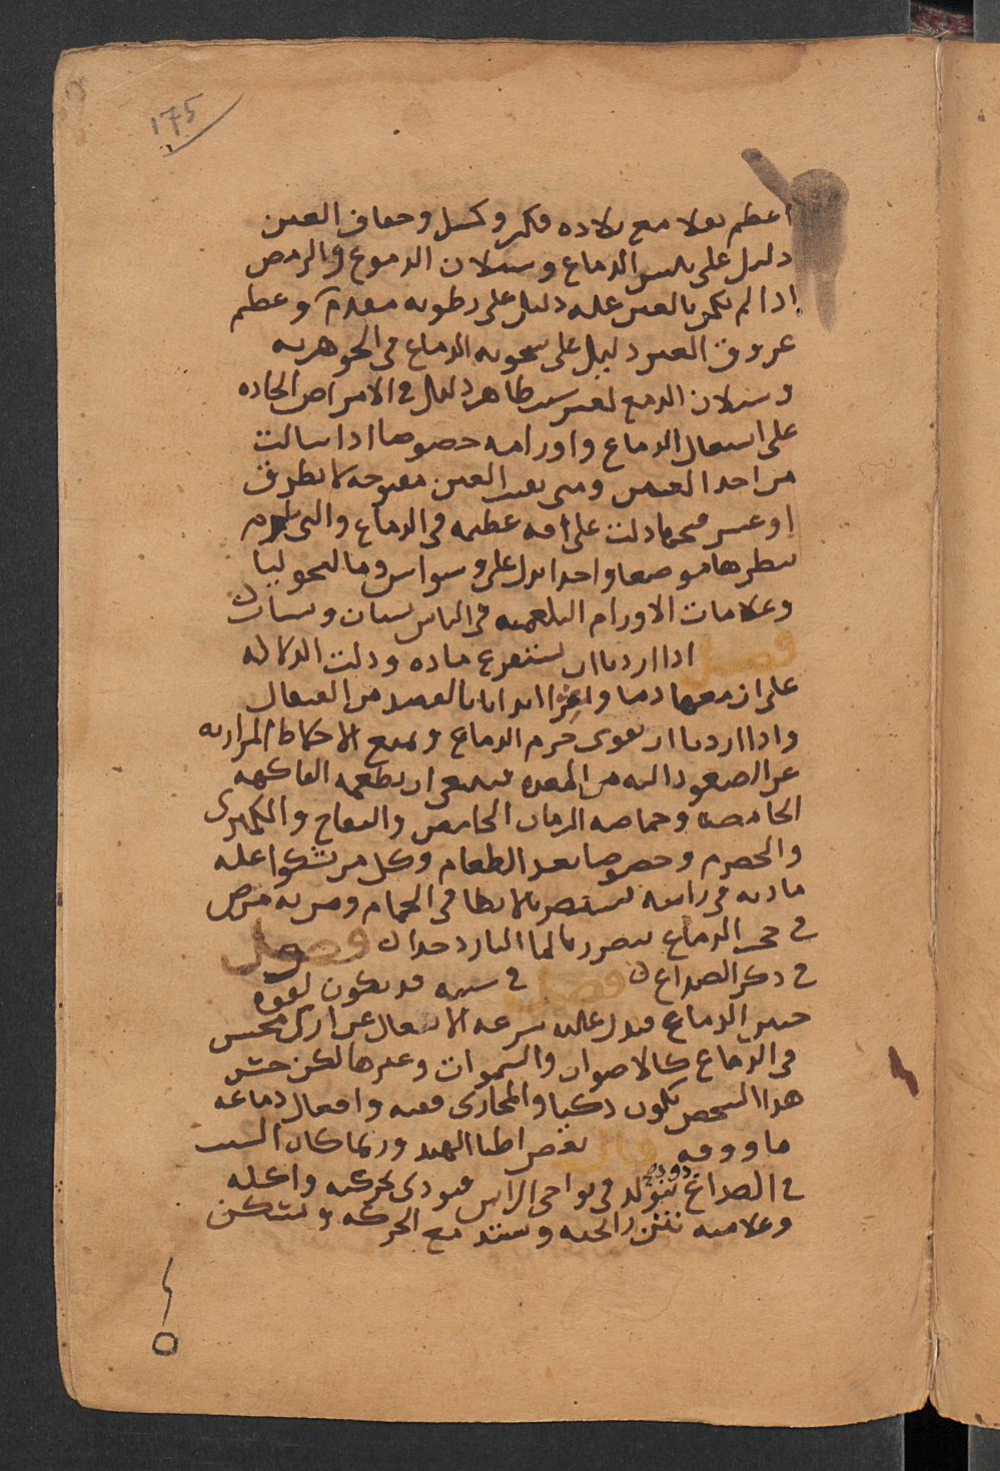 ١٧٥
اعظم ثقلا مع بلاده فكر وكسل وجفاف العين
دليل على يبس الدماغ وسيلان الدموع والرمص
اذا لم يكن بالعين عله دليل على رطوبه مقدم وعظم
عروق العين دليل على سخونه الدماغ في الجوهريه
وسيلان الدمع لغير سبب ظاهر دليل في الامراض الحاده
على اشتعال الدماغ واورامه خصوصا اذا سالت
من احد العينين ومتى بقيت العين مفتوحه لا تطرف
او عسر فتحها دلت على افه عظيمه في الدماغ والتي يلزم
نظرها موضعا واحدا يدل على وسواس ومالنحوليا
وعلامات الاورام البلغميه في الراس سبات ونسيان
فصل اذا اردنا ان نستفرغ ماده ودلت الدلاله
على ان معها دما وافرا ابدانا بالفصد من القيفال
واذا اردنا ان نقوى جرم الدماغ ونمنع الاخلاط المراريه
عن الصعود اليه من المعده فينبغي ان نطعمه الفاكهه
الحامضه وخاصه الرمان الحامض والتفاح والكمثرى
والحصرم وخصوصا بعد الطعام وكل من شكوا عله
ماديه في راسه يستضر بالابطا في الحمام ومن به مرض
في حجب الدماغ يتضرر بالما البارد جدا فصل
في ذكر الصداع فصل في سببه قد يكون لقوه
حس الدماغ فيدل عليه سرعه الانفعال عن ادنى محسس
في الدماغ كالاصوات والشمومات وغيرها لكن حس
هذا الشخص يكون ذكيا والمجارى نقيه وافعال دماغه
ماووفه قال بعض اطبا الهند وربما كان السبب
في الصداع دود يتولد في نواحى الراس فيوذى بحركته واكله
وعلامته نتن رائحته ويشتد مع الحركه ويسكن